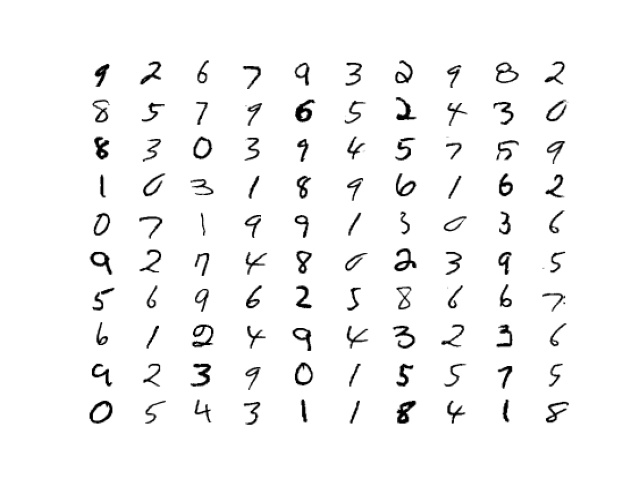 9 2 6 7 9 3 2 9 8 2
8 5 7 9 6 5 2 4 3 0
8 3 0 3 9 4 5 7 5 9
1 0 3 1 8 9 6 1 6 2
0 7 1 9 9 1 3 0 3 6
9 2 7 4 8 0 2 3 9 5
5 6 9 6 2 5 8 6 6 7
6 1 2 4 9 4 3 2 3 6
9 2 3 9 0 1 5 5 7 5
0 5 4 3 1 1 8 4 1 8